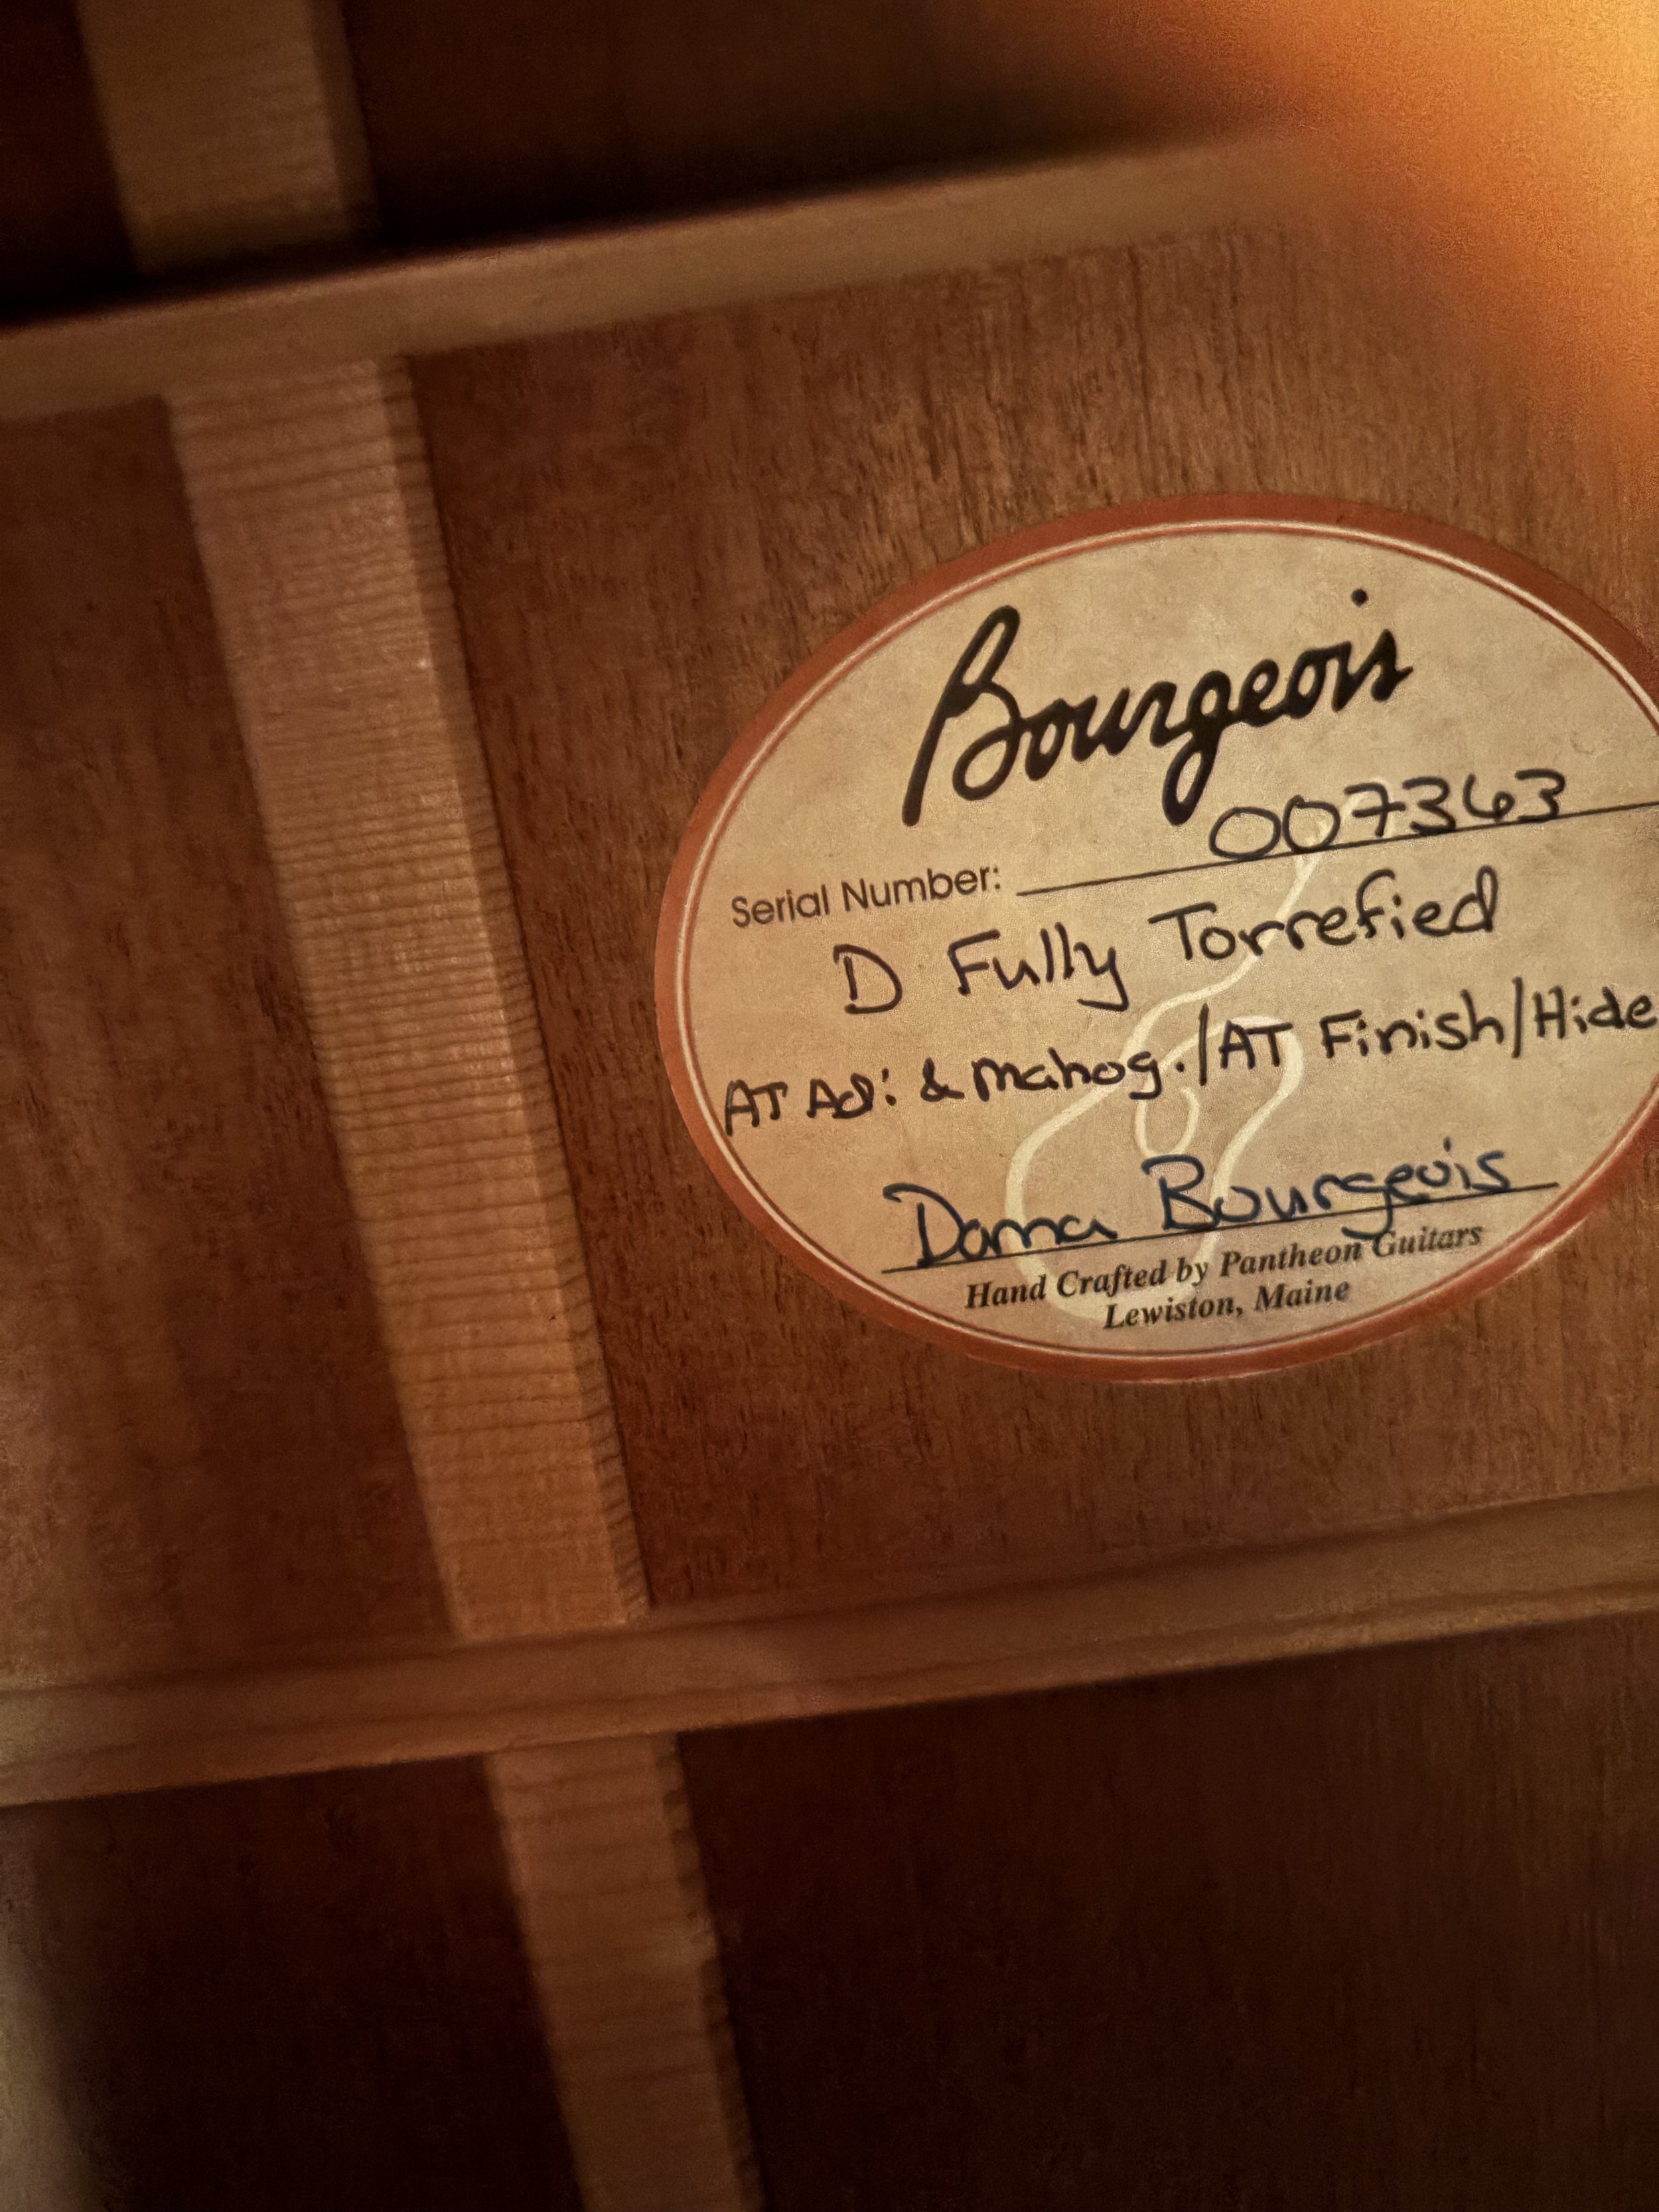 Bourgeois
Serial Number: 007363
D Fully Torrefied
AT Adi & Mahog./AT Finish/Hide
Dana Bourgeois
Hand Crafted by Pantheon Guitars
Lewiston, Maine